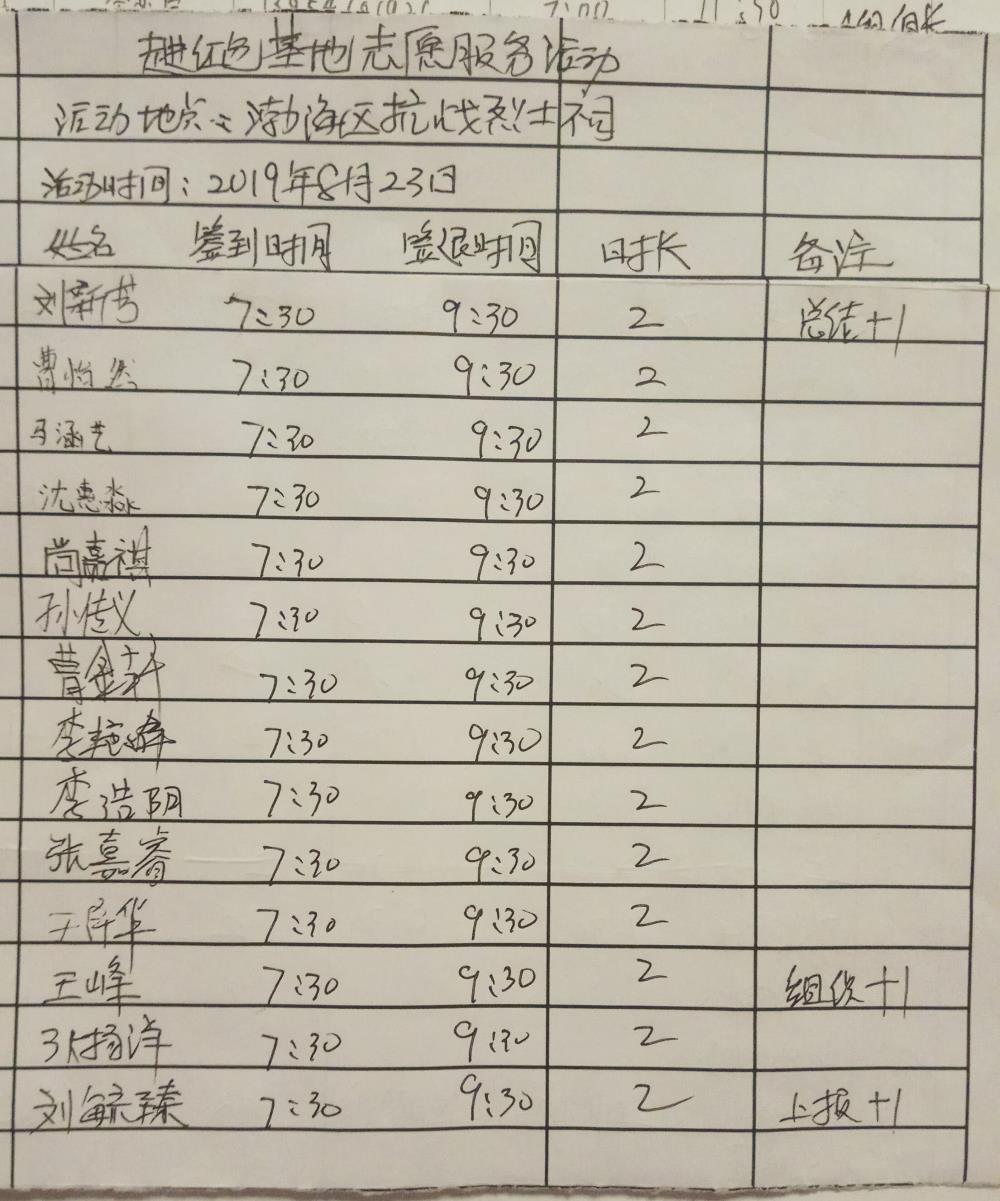 7:00 11:30
走进红色基地志愿服务活动
活动地点:渤海区抗战烈士祠
活动时间:2019年8月23日
姓名 签到时间 签退时间 时长 备注
刘新芳 7:30 9:30 2 总结+1
曹怡然 7:30 9:30 2
马涵艺 7:30 9:30 2
沈惠淼 7:30 9:30 2
尚嘉祺 7:30 9:30 2
孙佳义 7:30 9:30 2
曹金轩 7:30 9:30 2
李艳峰 7:30 9:30 2
李浩阴 7:30 9:30 2
张嘉睿 7:30 9:30 2
王 华 7:30 9:30 2
王峰 7:30 9:30 2 组织+1
孙扬洋 7:30 9:30 2
刘毓臻 7:30 9:30 2 上报+1